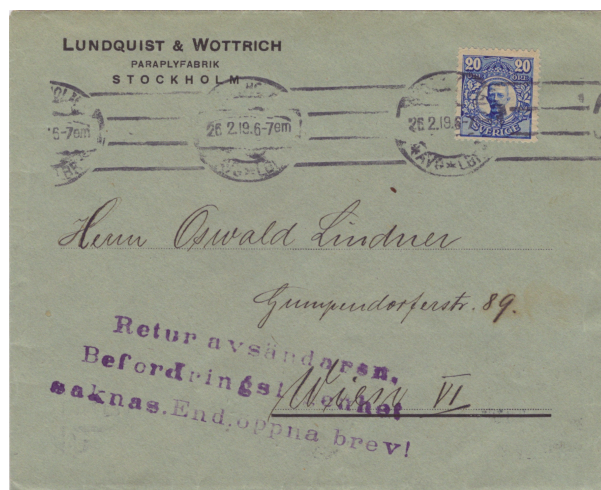 LUNDQUIST & WOTTRICH
PARAPLYFABRIK
STOCKHOLM
20 20
SVERIGE
26 2.19.6-7em
26 2.19.6-7em
*AVG*LBR
Herrn Oswald Lindner
Gumpendorferstr. 89.
Wien VI
Retur avsändaren,
Befordringsl enhet
saknas. End. öppna brev!